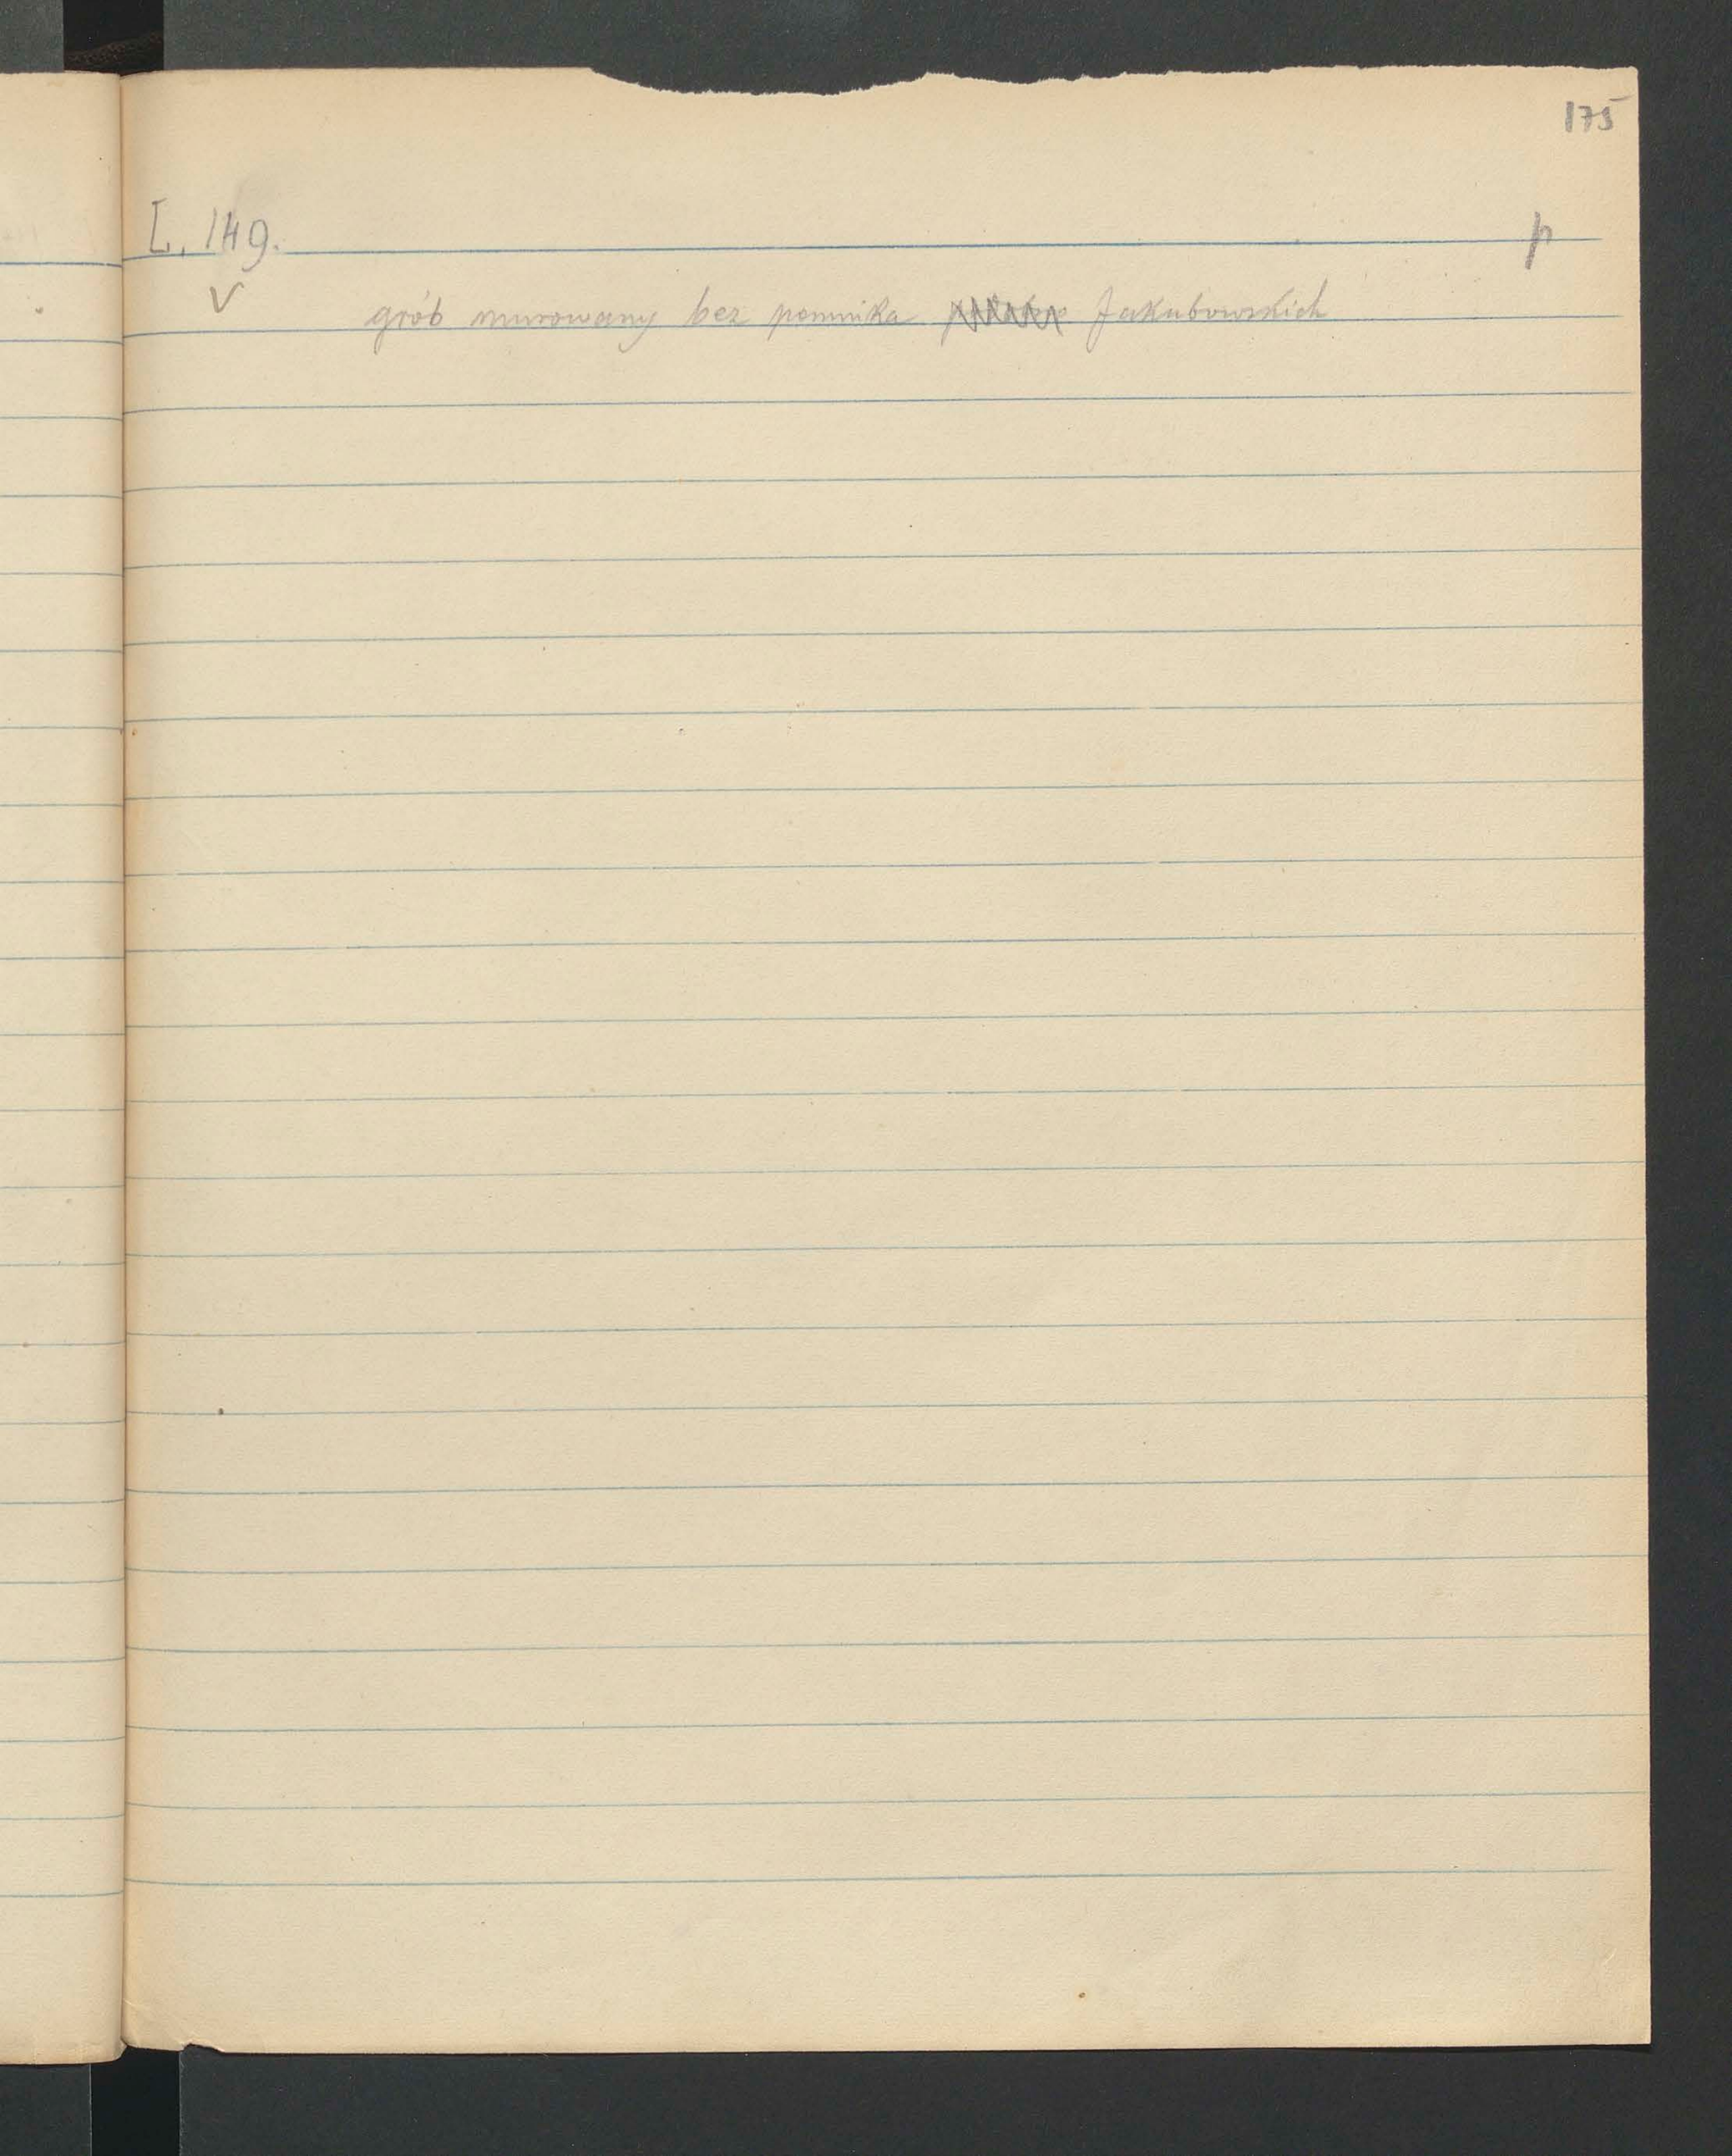 175
L. 149.
p
V
grób murowany bez pomnika Jakubowskich